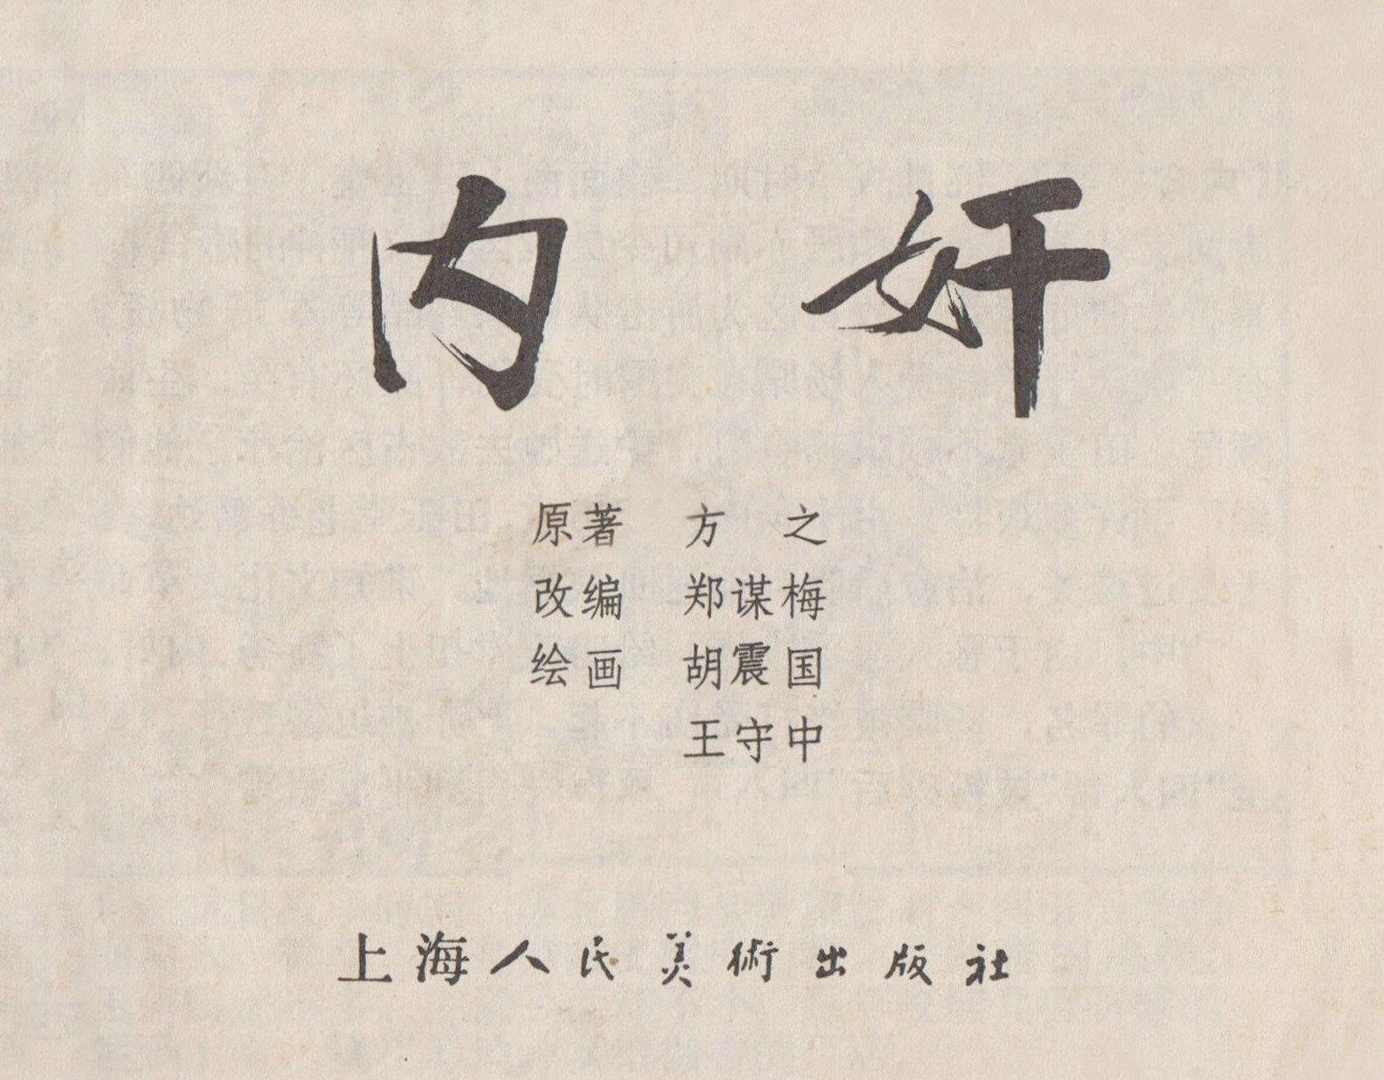 内奸
原著 方之
改编 郑谋梅
绘画 胡震国
王守中
上海人民美術出版社